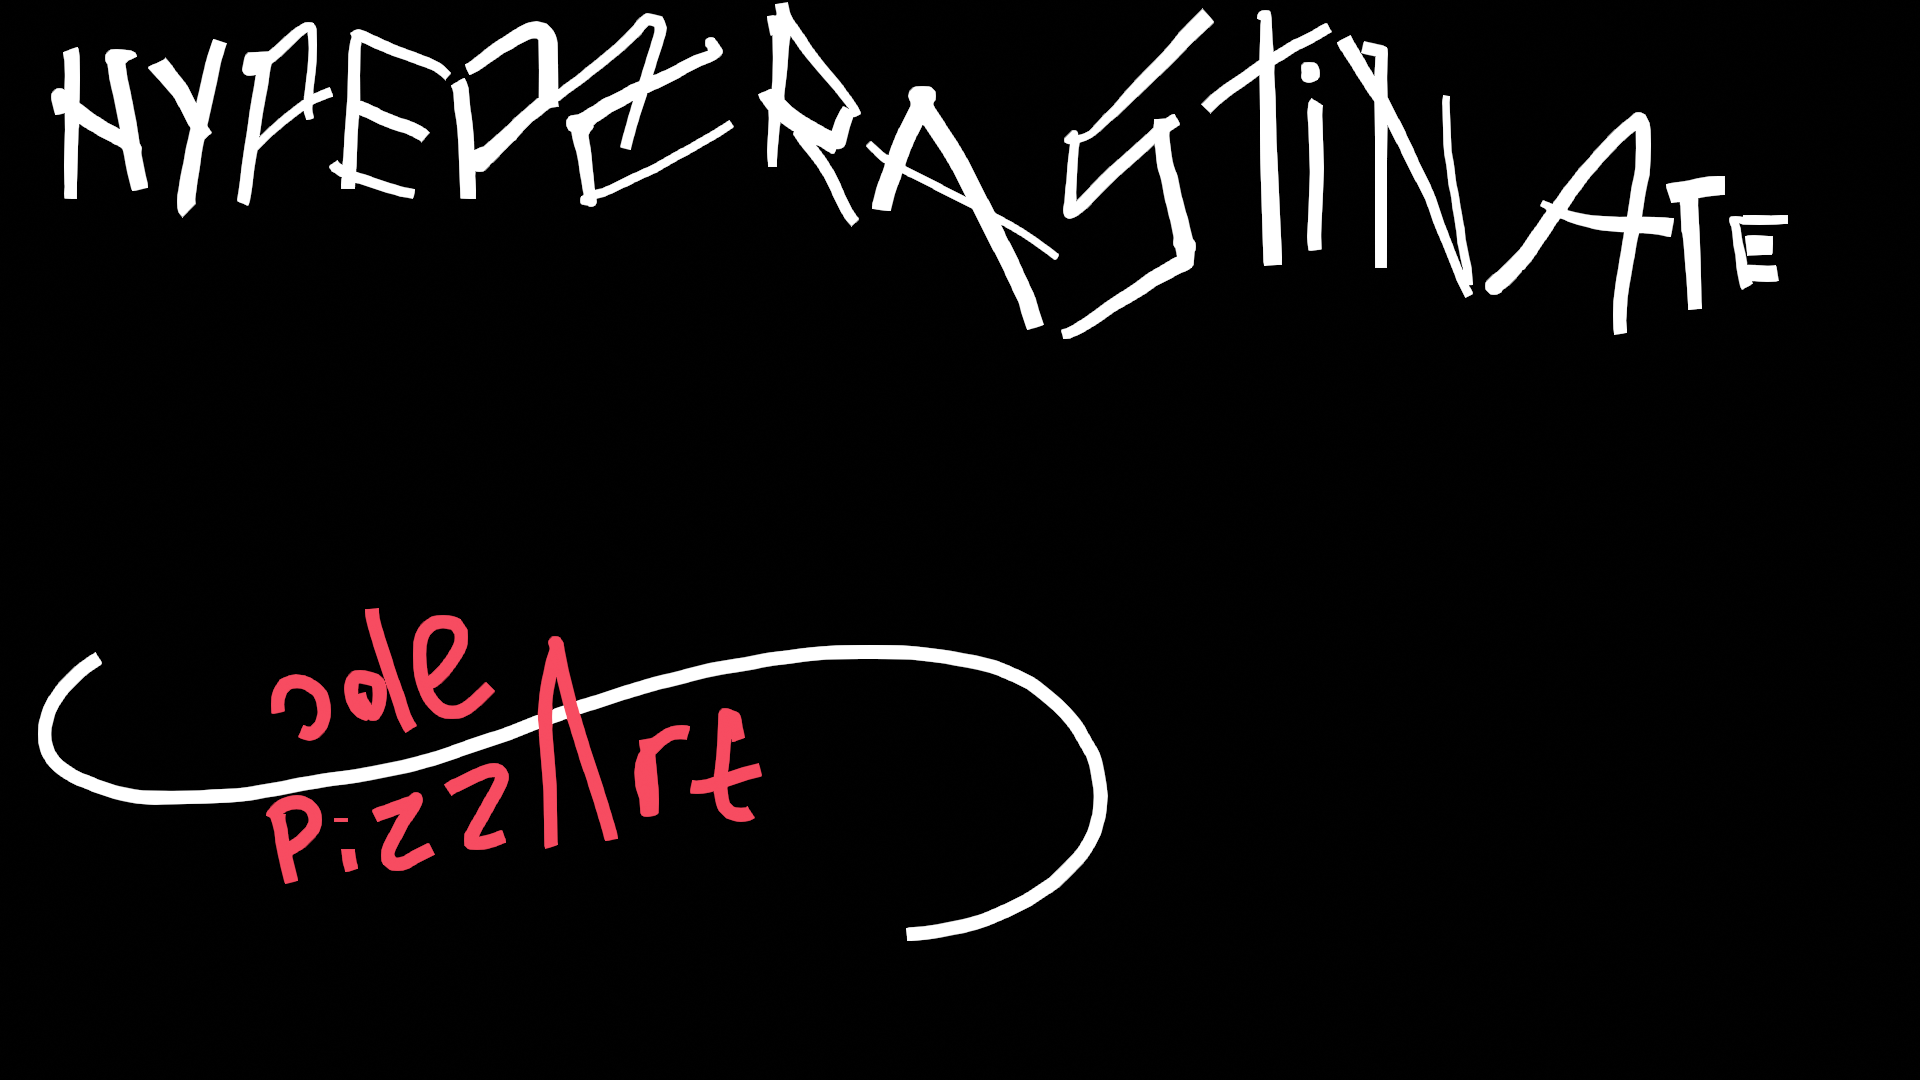 HYPEPZRASTiNATE
ode
PizzArt